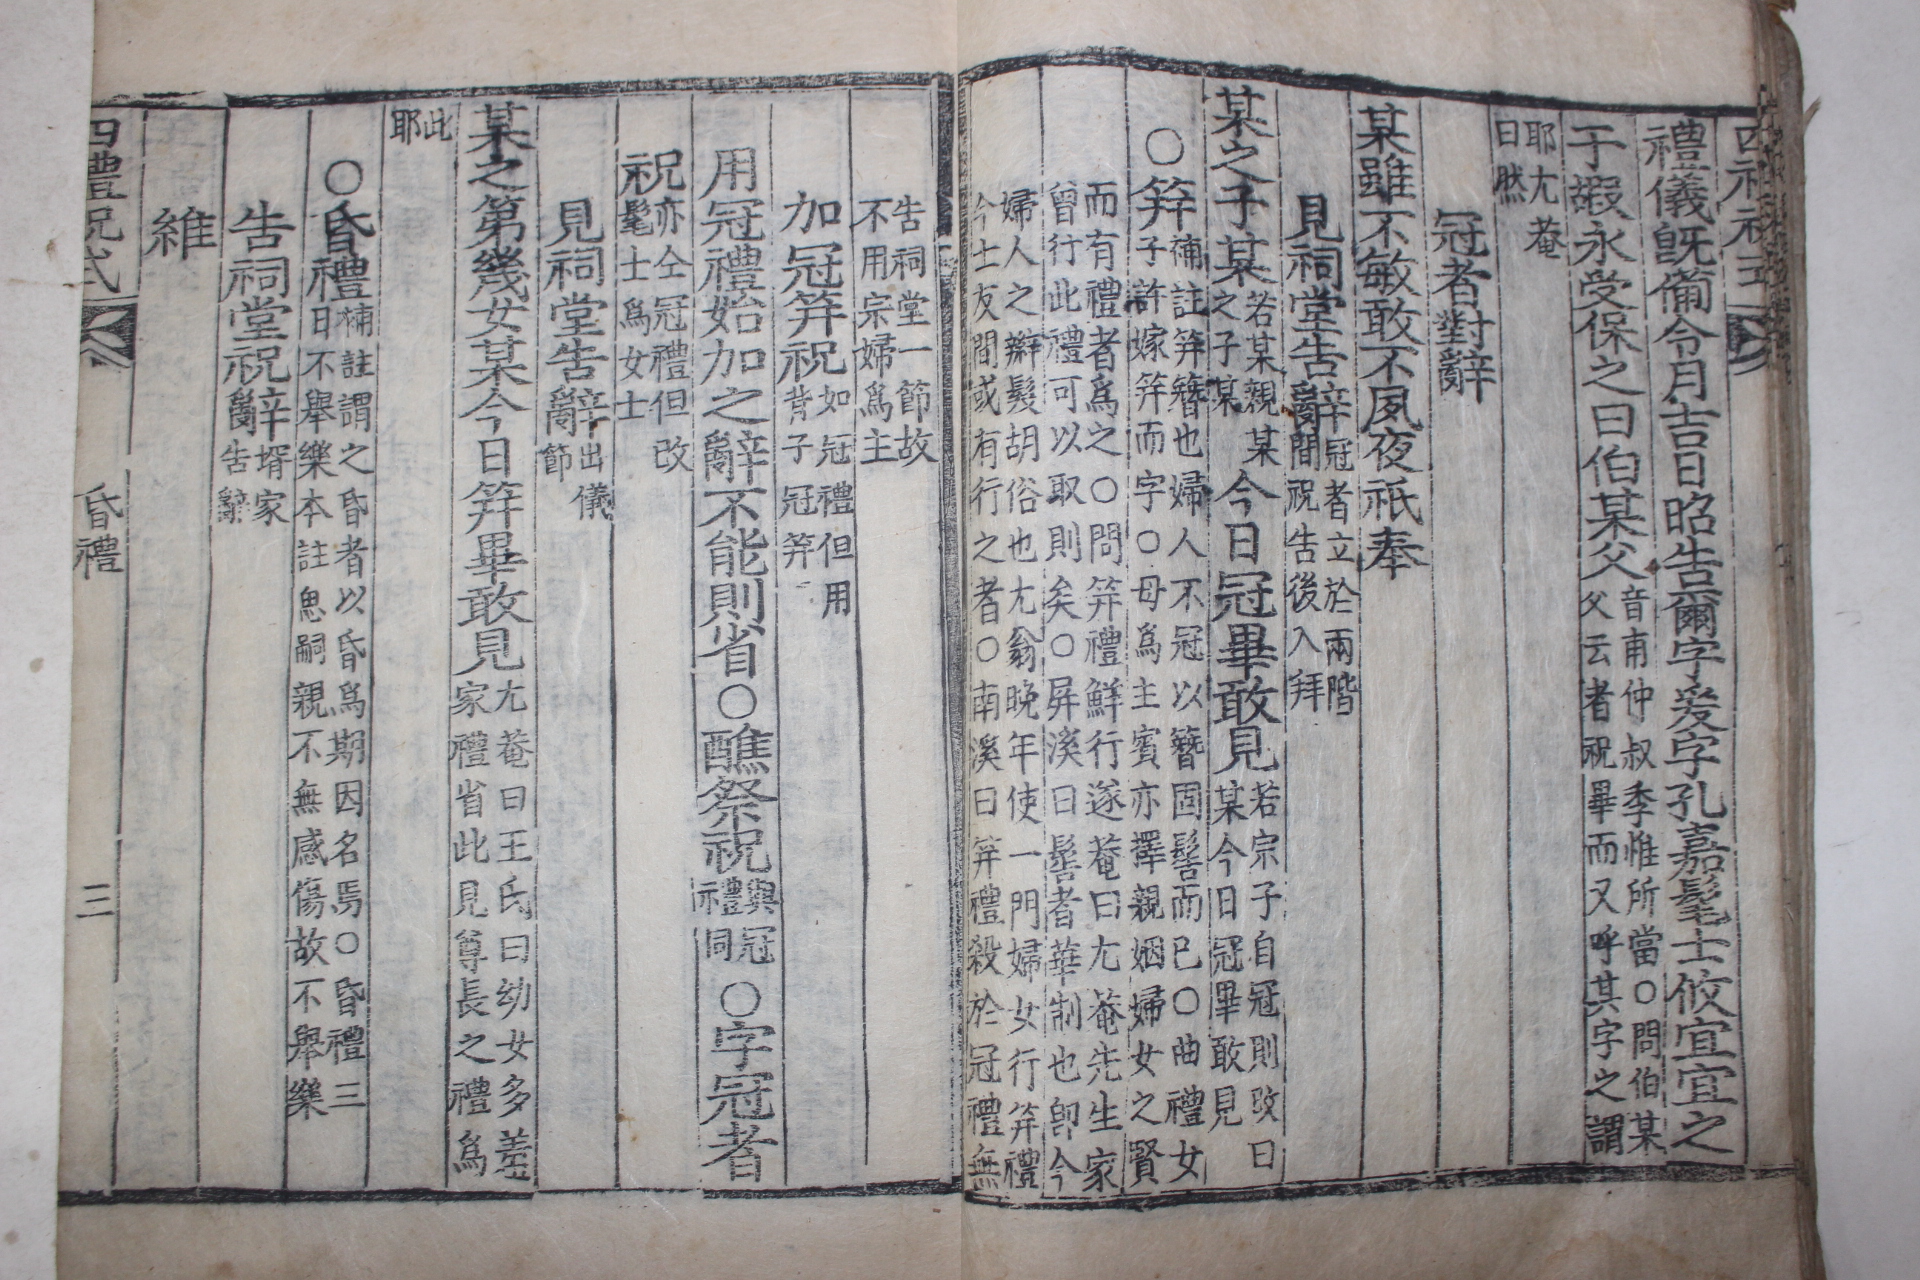 四禮祝式
禮儀旣備令月吉日昭告爾字爰字孔嘉髦士攸宜宜之
于嘏永受保之曰伯某父音甫仲叔季惟所當○問伯某
父云者祝畢而又呼其字之謂
耶尤菴
曰然
冠者對辭
某雖不敏敢不夙夜祇奉
見祠堂告辭冠者立於兩階
間祝告後入拜
某之子某若某親某
之子某
今日冠畢敢見若宗子自冠則改曰
某今日冠畢敢見
○笄補註笄簪也婦人不冠以簪固髻而已○曲禮女
子許嫁笄而字○母爲主賓亦擇親姻婦女之賢
而有禮者爲之○問笄禮鮮行遂菴曰尤菴先生家
曾行此禮可以取則矣○屛溪曰髻者華制也卽今
婦人之辮髮胡俗也尤翁晩年使一門婦女行笄禮
今士友間或有行之者○南溪曰笄禮殺於冠禮無
告祠堂一節故
不用宗婦爲主
加冠笄祝如冠禮但用
背子冠笄
用冠禮始加之辭不能則省○醮祭祝與冠
禮同
○字冠者
祝亦仝冠禮但改
髦士爲女士
見祠堂告辭出儀
節
某之第幾女某今日笄畢敢見尤菴曰王氏曰幼女多羞
家禮省此見尊長之禮爲
此
耶
○昏禮補註謂之昏者以昏爲期因名焉○昏禮三
日不擧樂本註思嗣親不無感傷故不擧樂
告祠堂祝辭壻家
告辭
維
四禮祝式 昏禮 三